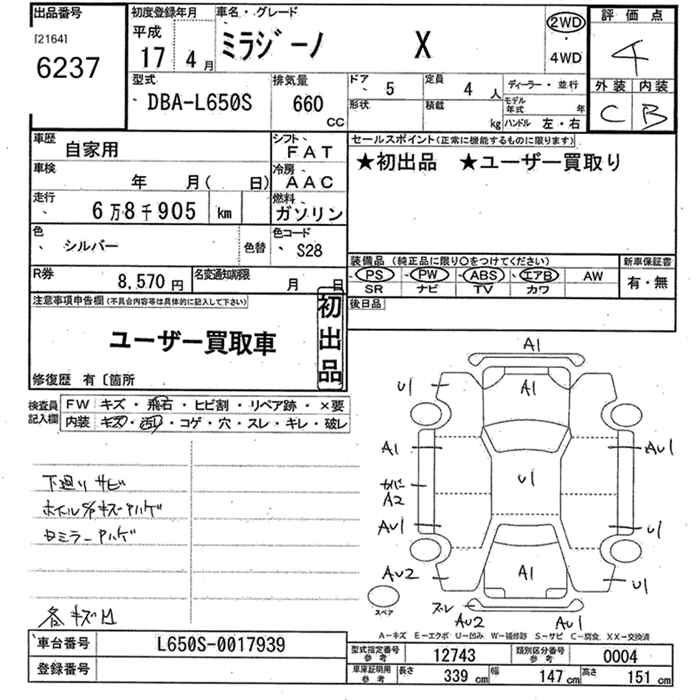 出品番号
[2164]
6237
初度登録年月
平成
17 4月
車名・グレード
ミラジーノ X
2WD
4WD
評価点
4
外装 内装
C B
型式
DBA-L650S
排気量
660 cc
ドア 5
形状
定員 4 人
積載 kg
ディーラー・並行
モデル年式 年
ハンドル 左・右
車歴 自家用
シフト FAT
車検 年 月( 日)
冷房 AAC
走行 6万8千905 km
燃料 ガソリン
色 シルバー
色替
色コード S28
R券 8,570円
名変通知期限 月 日
セールスポイント(正常に機能するものに限ります)
★初出品 ★ユーザー買取り
装備品 (純正品に限り〇をつけてください)
新車保証書
PS PW ABS エアB AW
SR ナビ TV カワ
有・無
後日品
注意事項申告欄(不具合内容等は具体的に記入して下さい)
ユーザー買取車
初出品
修復歴 有〔箇所
検査員記入欄
FW キズ・飛石・ヒビ割・リペア跡・×要
内装 キズ・汚れ・コゲ・穴・スレ・キレ・破レ
下廻りサビ
各キズ凹
A1
U1
A1
A1
AU1
U1
A2
AU1
U1
AU2
A1
U1
スペア
AU2
AU1
A-キズ E-エクボ U-凹み W-補修跡 S-サビ C-腐食 XX-交換済
車台番号 L650S-0017939
登録番号
型式指定番号参考 12743
類別区分番号参考 0004
車庫証明用参考 長さ 339 cm 幅 147 cm 高さ 151 cm